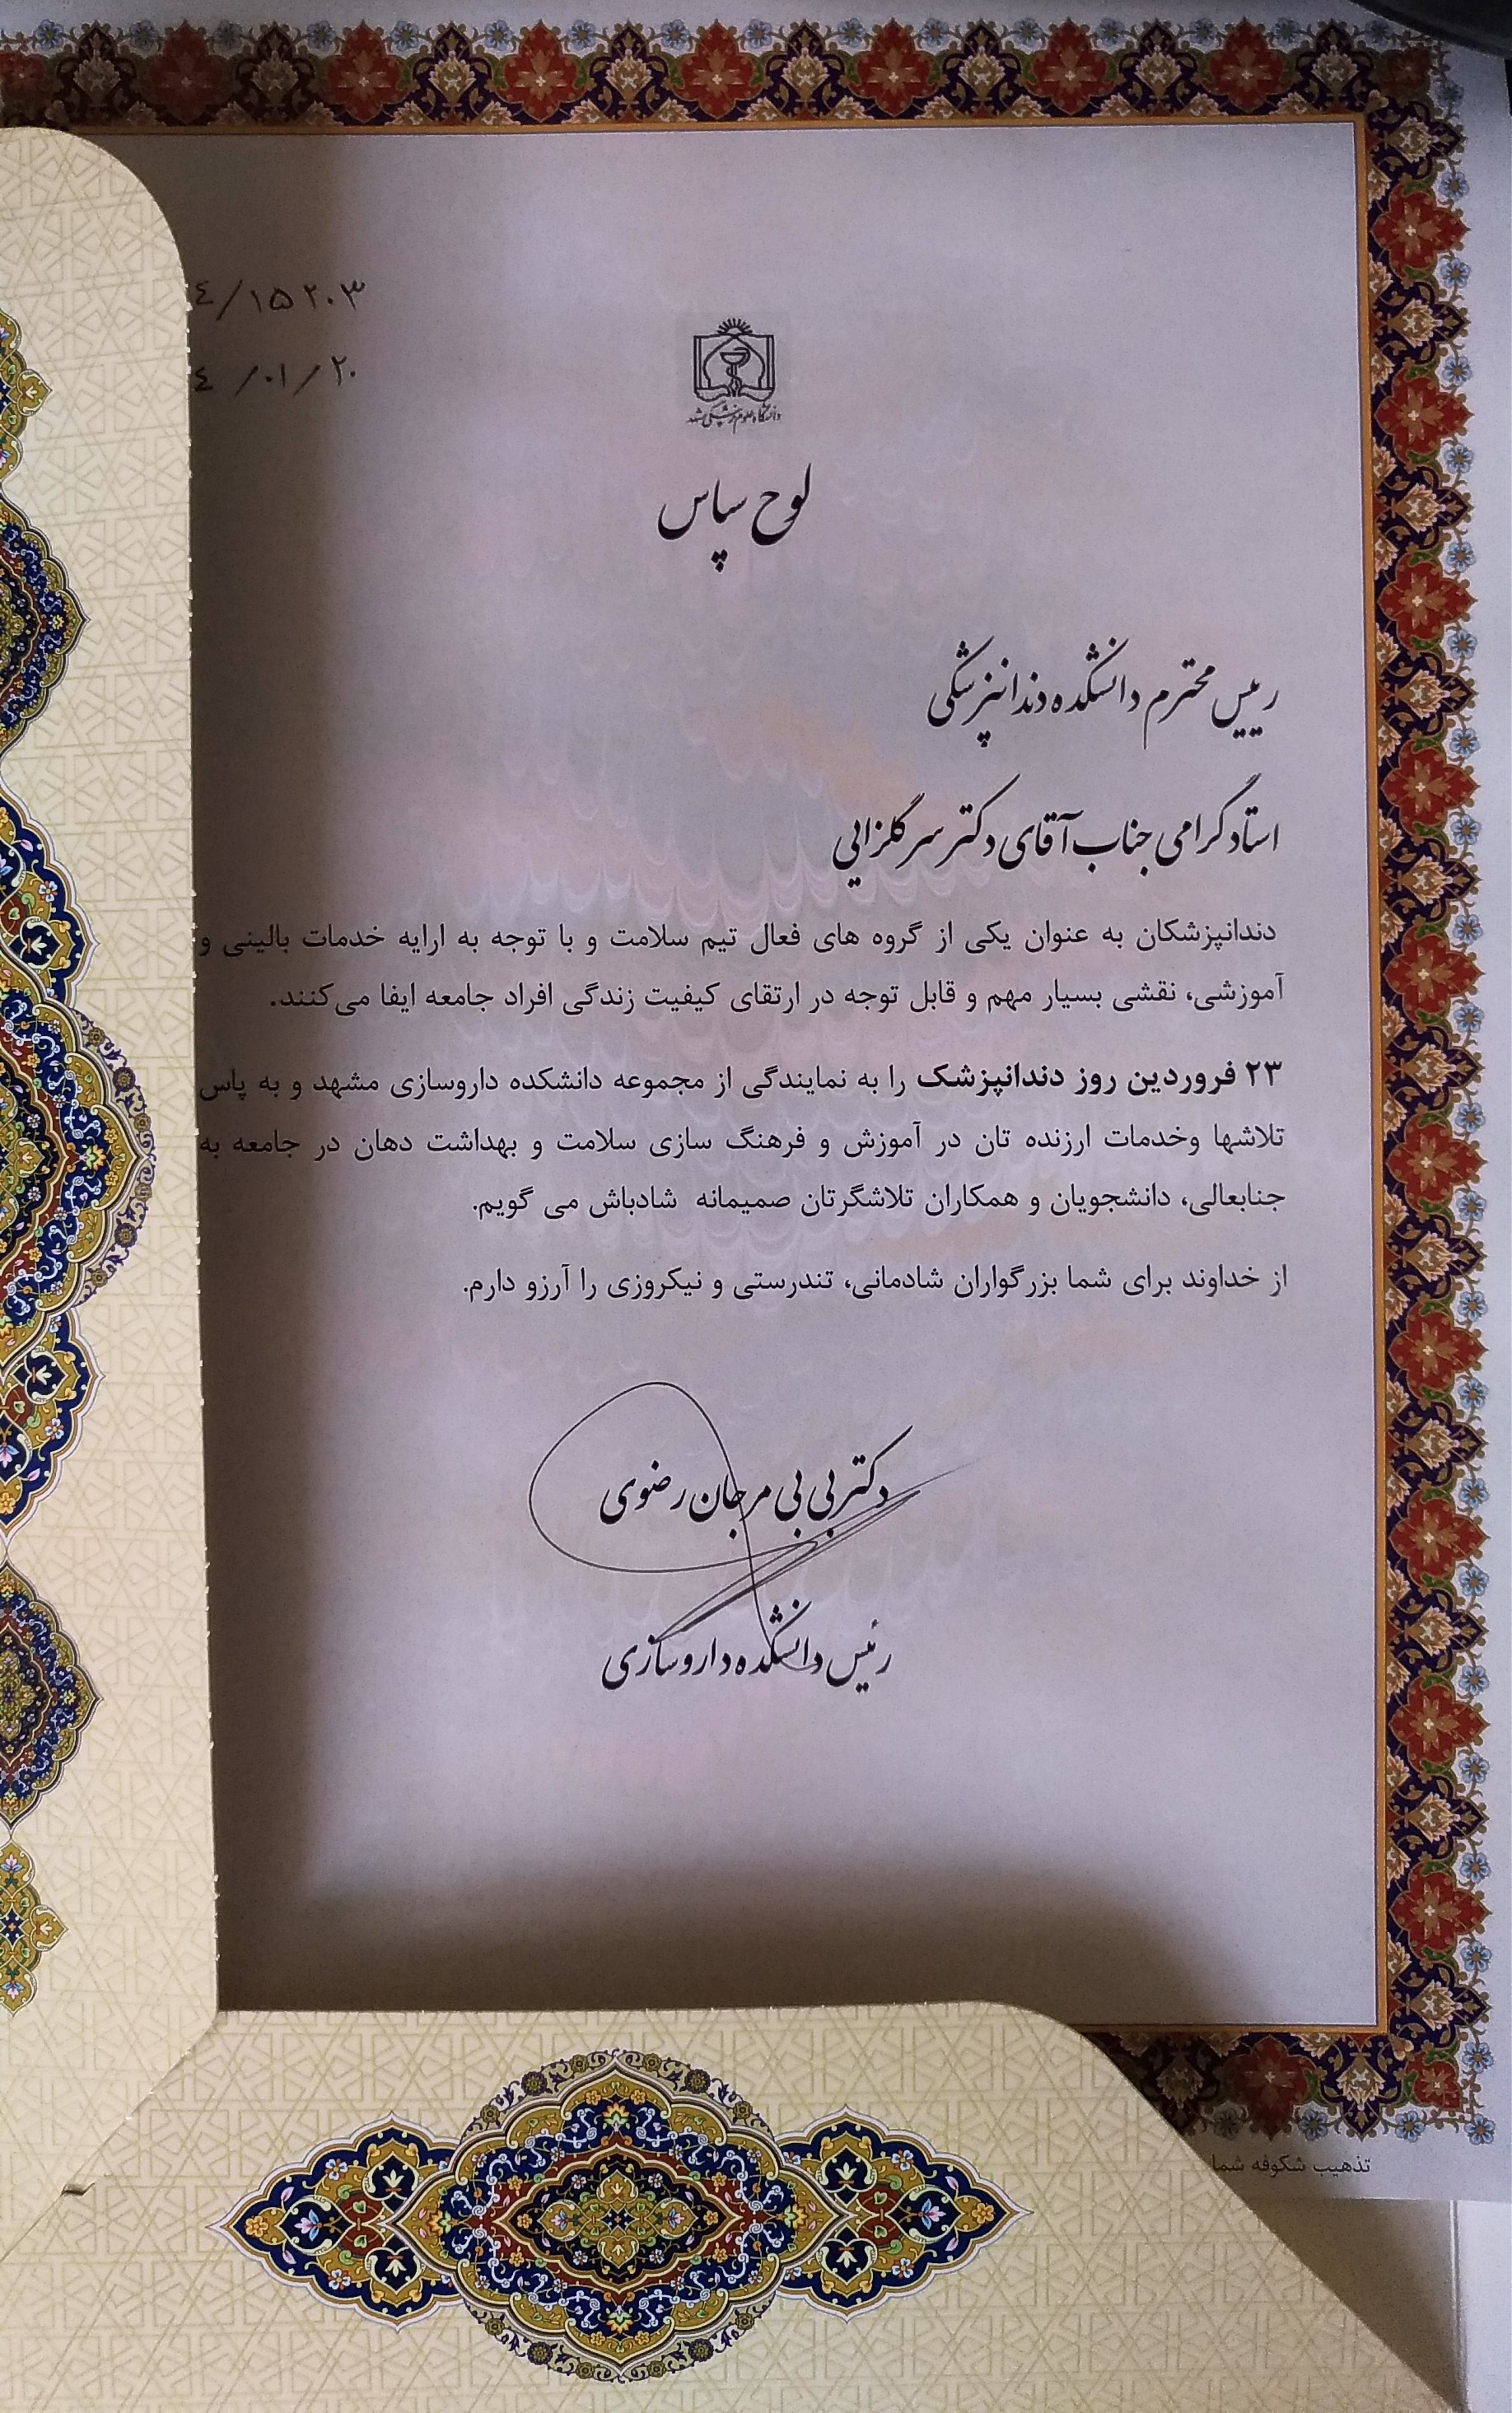 ٤/۱۵۲۰۳
٤/۰۱/۲۰
دانشگاه علوم پزشکی مشهد
لوح سپاس
رییس محترم دانشکده دندانپزشکی
استاد گرامی جناب آقای دکتر سرگلزایی
دندانپزشکان به عنوان یکی از گروه های فعال تیم سلامت و با توجه به ارایه خدمات بالینی و
آموزشی، نقشی بسیار مهم و قابل توجه در ارتقای کیفیت زندگی افراد جامعه ایفا می‌کنند.
۲۳ فروردین روز دندانپزشک را به نمایندگی از مجموعه دانشکده داروسازی مشهد و به پاس
تلاشها وخدمات ارزنده تان در آموزش و فرهنگ سازی سلامت و بهداشت دهان در جامعه به
جنابعالی، دانشجویان و همکاران تلاشگرتان صمیمانه شادباش می گویم.
از خداوند برای شما بزرگواران شادمانی، تندرستی و نیکروزی را آرزو دارم.
دکتر بی بی مرجان رضوی
رئیس دانشکده داروسازی
تذهیب شکوفه شما